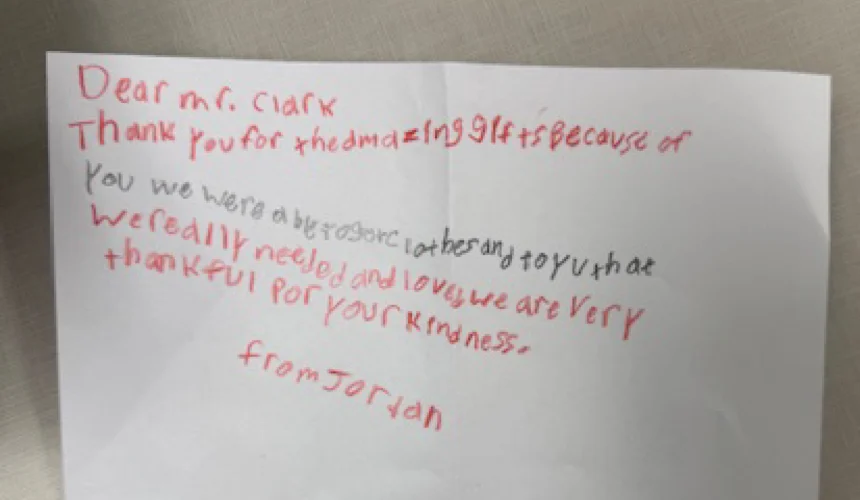 Dear mr. Clark
Thank you for the amazing gifts Because of
you we were able to get clothes and toyu that
we really needed and loved, we are very
thankful for your kindness.
from Jordan